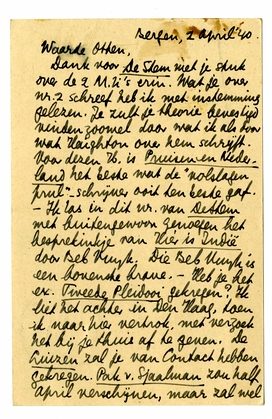 Bergen, 2 April '40.
Waarde Otten,
Dank voor De Stem met je stuk
over de 2 M.'s erin. Wat je over
nr. 2 schreef heb ik met instemming
gelezen. Je zult je theorie bevestigd
vinden zoowel door wat ik als door
wat Haighton over hem schrijft.
Voor deren is Pruisen en Neder-
land het beste wat de "volslagen
prul"-schrijver ooit ten beste gaf.
- Ik las in dit nr. van De Stem
met buitengewoon genoegen het
besprekinkje van Hier is Indië
door Beb Vuyk. Die Beb Vuyk is
een bovenste brave. - Heb je het
ex. Tweede Pleidooi gekregen? Ik
liet het achter in Den Haag, toen
ik naar hier vertrok, met verzoek
het bij je thuis af te geven. De
zal je van Contact hebben
gekregen. Pak v. Sjaalman zou half
april verschijnen, maar zal wel